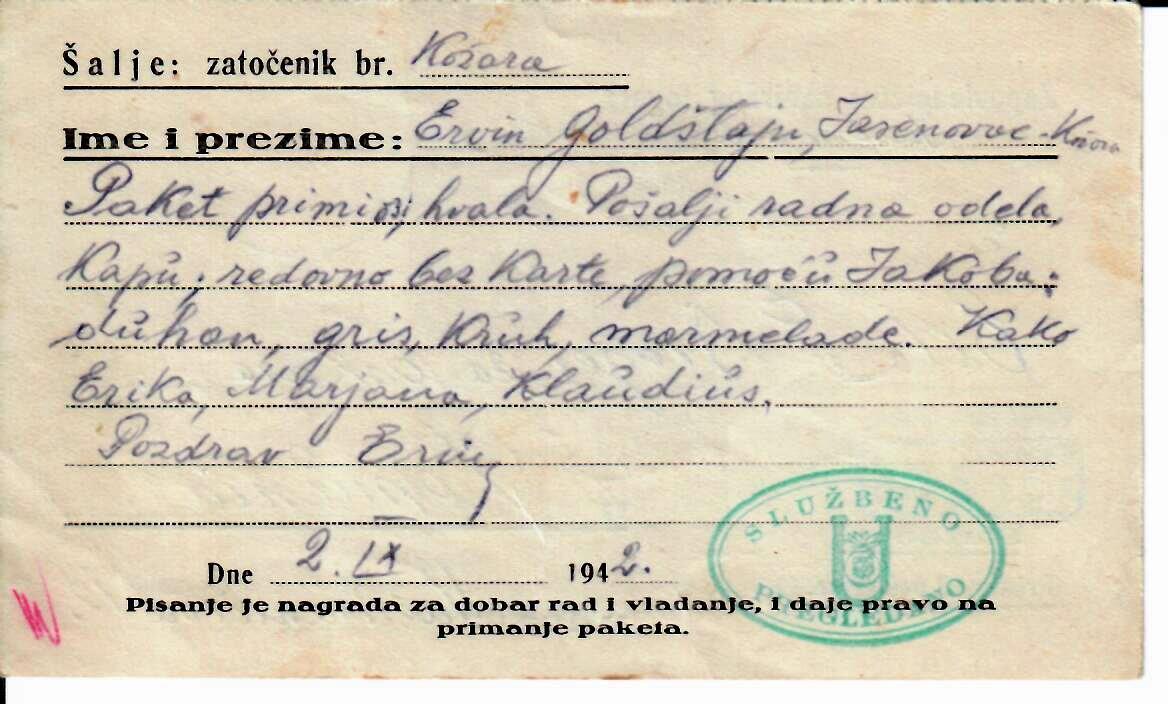 Šalje: zatočenik br. Kožara
Ime i prezime: Ervin Goldštajn, Jasenovac-Kožara
Paket primio, hvala. Pošalji radna odela,
kapu; redovno bez karte pomoću Jakoba:
duhan, gris, kruh, marmelade. Kako
Erika, Marjana, Klaudius.
Pozdrav Ervin
Dne 2. IX 1942.
Pisanje je nagrada za dobar rad i vladanje, i daje pravo na
primanje paketa.
SLUŽBENO
U
PREGLEDANO